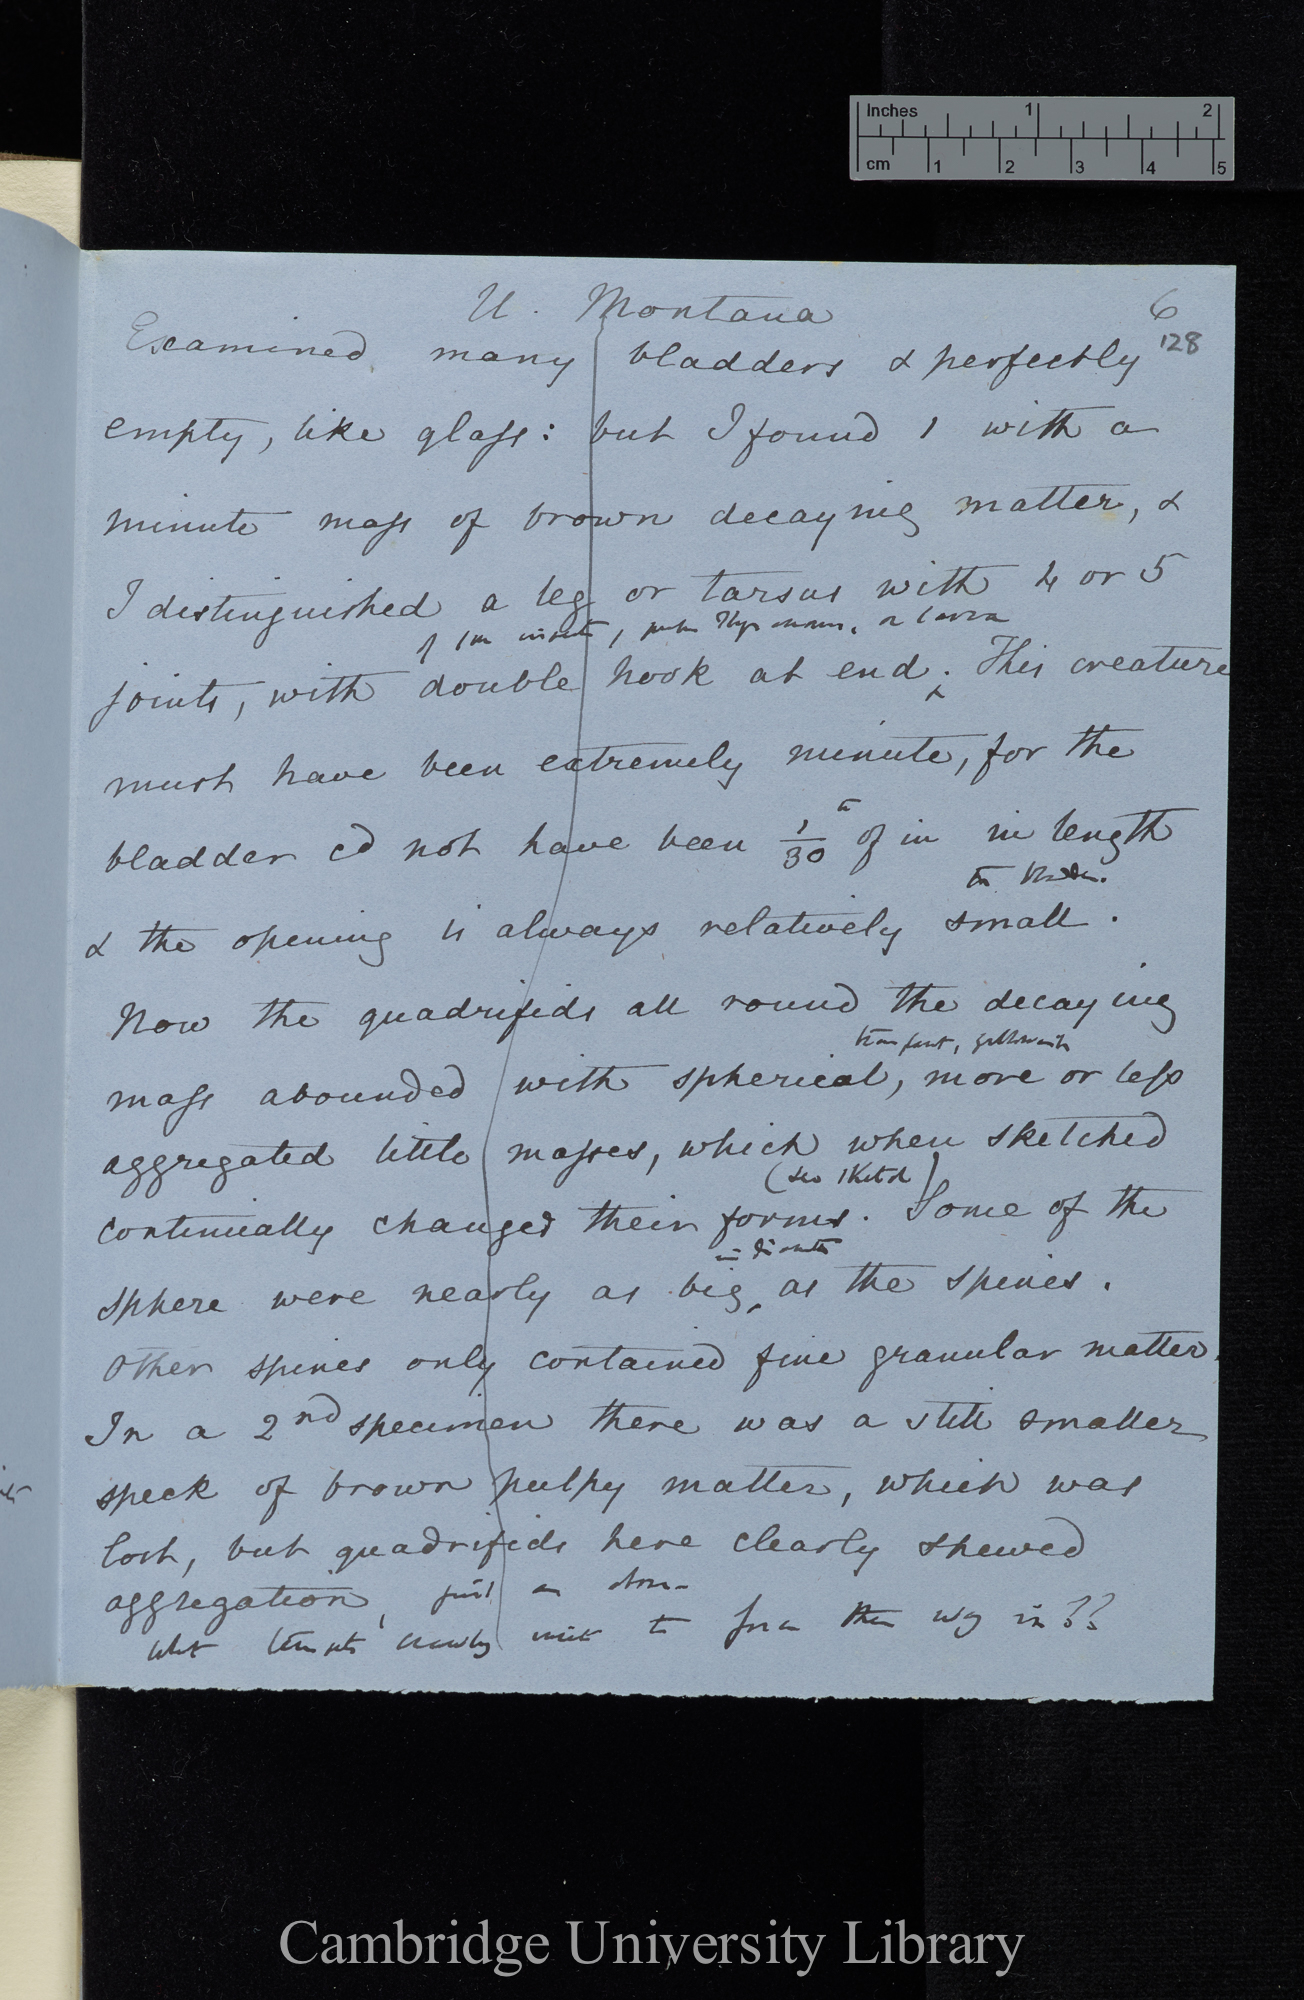 Inches 1 2
cm 1 2 3 4 5
U. Montana 6
128
Examined many bladders & perfectly
empty, like glass: but I found 1 with a
minute mass of brown decaying matter, &
I distinguished a leg or tarsus with 4 or 5
of insect, or larva
joints, with double hook at end. This creature
must have been extremely minute, for the
bladder cd not have been 1/30th of in in length
& the opening is always relatively small.
Now the quadrifids all round the decaying
mass abounded with spherical, more or less
aggregated little masses, which when sketched
(see sketch)
continually changed their forms. Some of the
in diameter
sphere were nearly as big as the spines.
Other spines only contained fine granular matter.
In a 2nd specimen there was a still smaller
speck of brown pulpy matter, which was
lost, but quadrifids here clearly shewed
aggregation,
What to force their way in??
Cambridge University Library